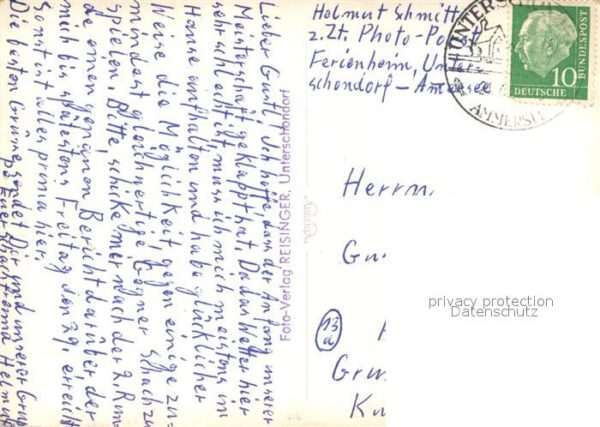 Helmut Schmitt
z. Zt. Photo-Porst
Ferienheim, Unter-
schondorf - Ammersee
UNTERSCHONDORF
AMMERSEE
10
DEUTSCHE
BUNDESPOST
Herrn
Gu
13
a
Gru
Ku
privacy protection
Datenschutz
Foto-Verlag REISINGER, Unterschondorf
Lieber Gustl! Ich hoffe, dass der Anfang unserer
Meisterschaft geklappt hat. Da das Wetter hier
sehr schlecht ist, muss ich mich meistens im
Hause aufhalten und habe glücklicher
Weise die Möglichkeit, gegen einige zu-
mindest gleichwertige Gegner Schach zu
spielen. Bitte schicke mir nach der 2. Run-
de einen genauen Bericht darüber, der
mich bis spätestens Freitag, den 29. erreicht
Sonst ist alles prima hier.
Die besten Grüsse sendet Dir und unserer Grup-
pe Euer Helmut